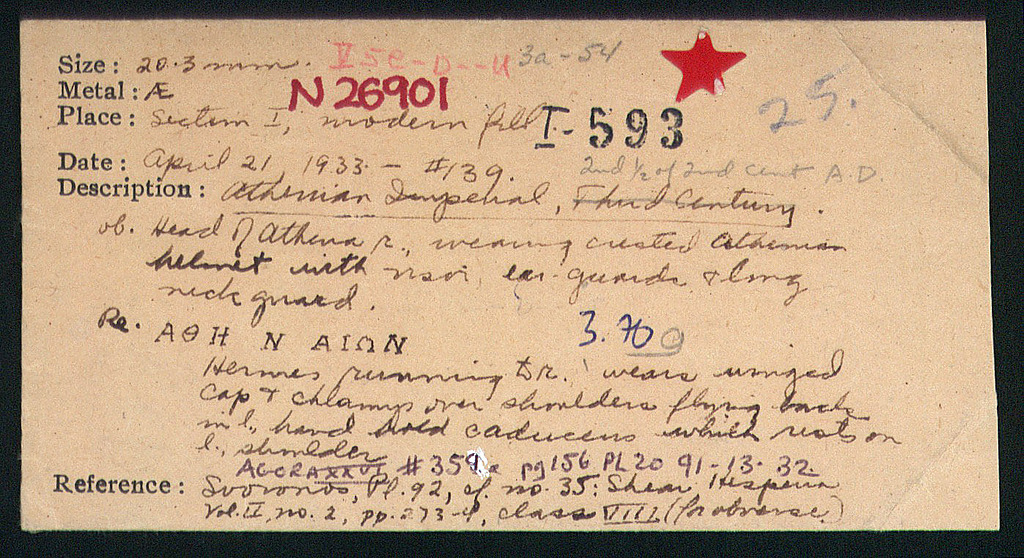 Size: 20.3 mm. V 5e-D--U 3a-54
Metal: Æ N 26901
Place: Section I, modern fill I-593 25.
Date: April 21, 1933. - #139. 2nd ½ of 2nd cent A.D.
Description: Athenian Imperial, Third Century.
ob. Head of Athena r., wearing crested Athenian
helmet with visor, ear-guards & long
neck guard.
Re. ΑΘΗ Ν ΑΙΩΝ 3.70
Hermes running to r. wears winged
cap & chlamys over shoulders flying back
in l. hand hold caduceus which rests on
l. shoulder
AGORA XXVI #359a pg 156 PL 20 91-13-32
Reference: Svoronos, Pl. 92, cf. no. 35: Shear, Hesperia
Vol. II, no. 2, pp. 273-4, class VIII (for obverse)